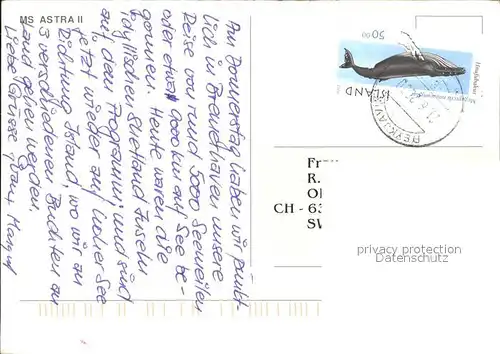 MS ASTRA II
Am Donnerstag haben wir pünkt-
lich in Bremerhaven unsere
Reise von rund 5000 Seeweilen
oder etwa 9000 km auf See be-
gonnen. Heute waren die
idyllischen Shetland Inseln
auf dem Programm und sind
jetzt wieder auf hoher See
Richtung Island, wo wir an
3 verschiedenen Buchten an
Land gehen werden.
Liebe Grüsse
50.00
Hnúfubakur
Megaptera novaeangliae
ÍSLAND
REYKJAVÍK
R.
CH - 63
privacy protection
Datenschutz